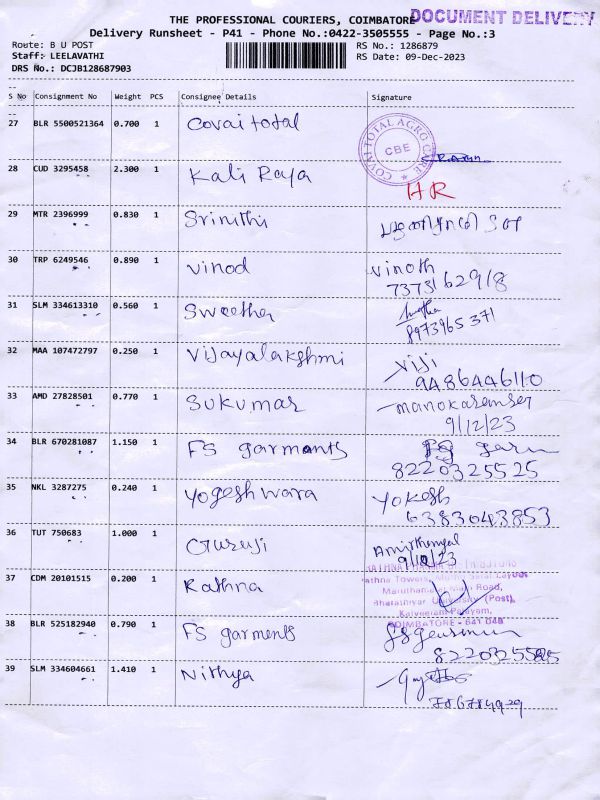 DOCUMENT DELIVERY
THE PROFESSIONAL COURIERS, COIMBATORE
Delivery Runsheet - P41 - Phone No.:0422-3505555 - Page No.:3
Route: B U POST
RS No.: 1286879
Staff: LEELAVATHI
RS Date: 09-Dec-2023
DRS No.: DCJB128687903
S No Consignment No Weight PCS Consignee Details Signature
27 BLR 5500521364 0.700 1 Covai total
COVAI TOTAL AGRO CARE
CBE
28 CUD 3295458 2.300 1 Kali Raja
HR
29 MTR 2396999 0.830 1 Srinithi
30 TRP 6249546 0.890 1 vinod vinoth
7373162918
31 SLM 334613310 0.560 1 Swetha
8973965371
32 MAA 107472797 0.250 1 Vijayalakshmi viji
9486446110
33 AMD 27828501 0.770 1 Sukumar
9/12/23
34 BLR 670281087 1.150 1 FS garments
8220325525
35 NKL 3287275 0.240 1 Yogeshwara Yokesh
6383043853
36 TUT 750683 1.000 1 Guruji
37 CDM 20101515 0.200 1 Rathna
Road,
Bharathiyar University (Post),
COIMBATORE - 641 046
38 BLR 525182940 0.790 1 FS garments
39 SLM 334604661 1.410 1 Nithya